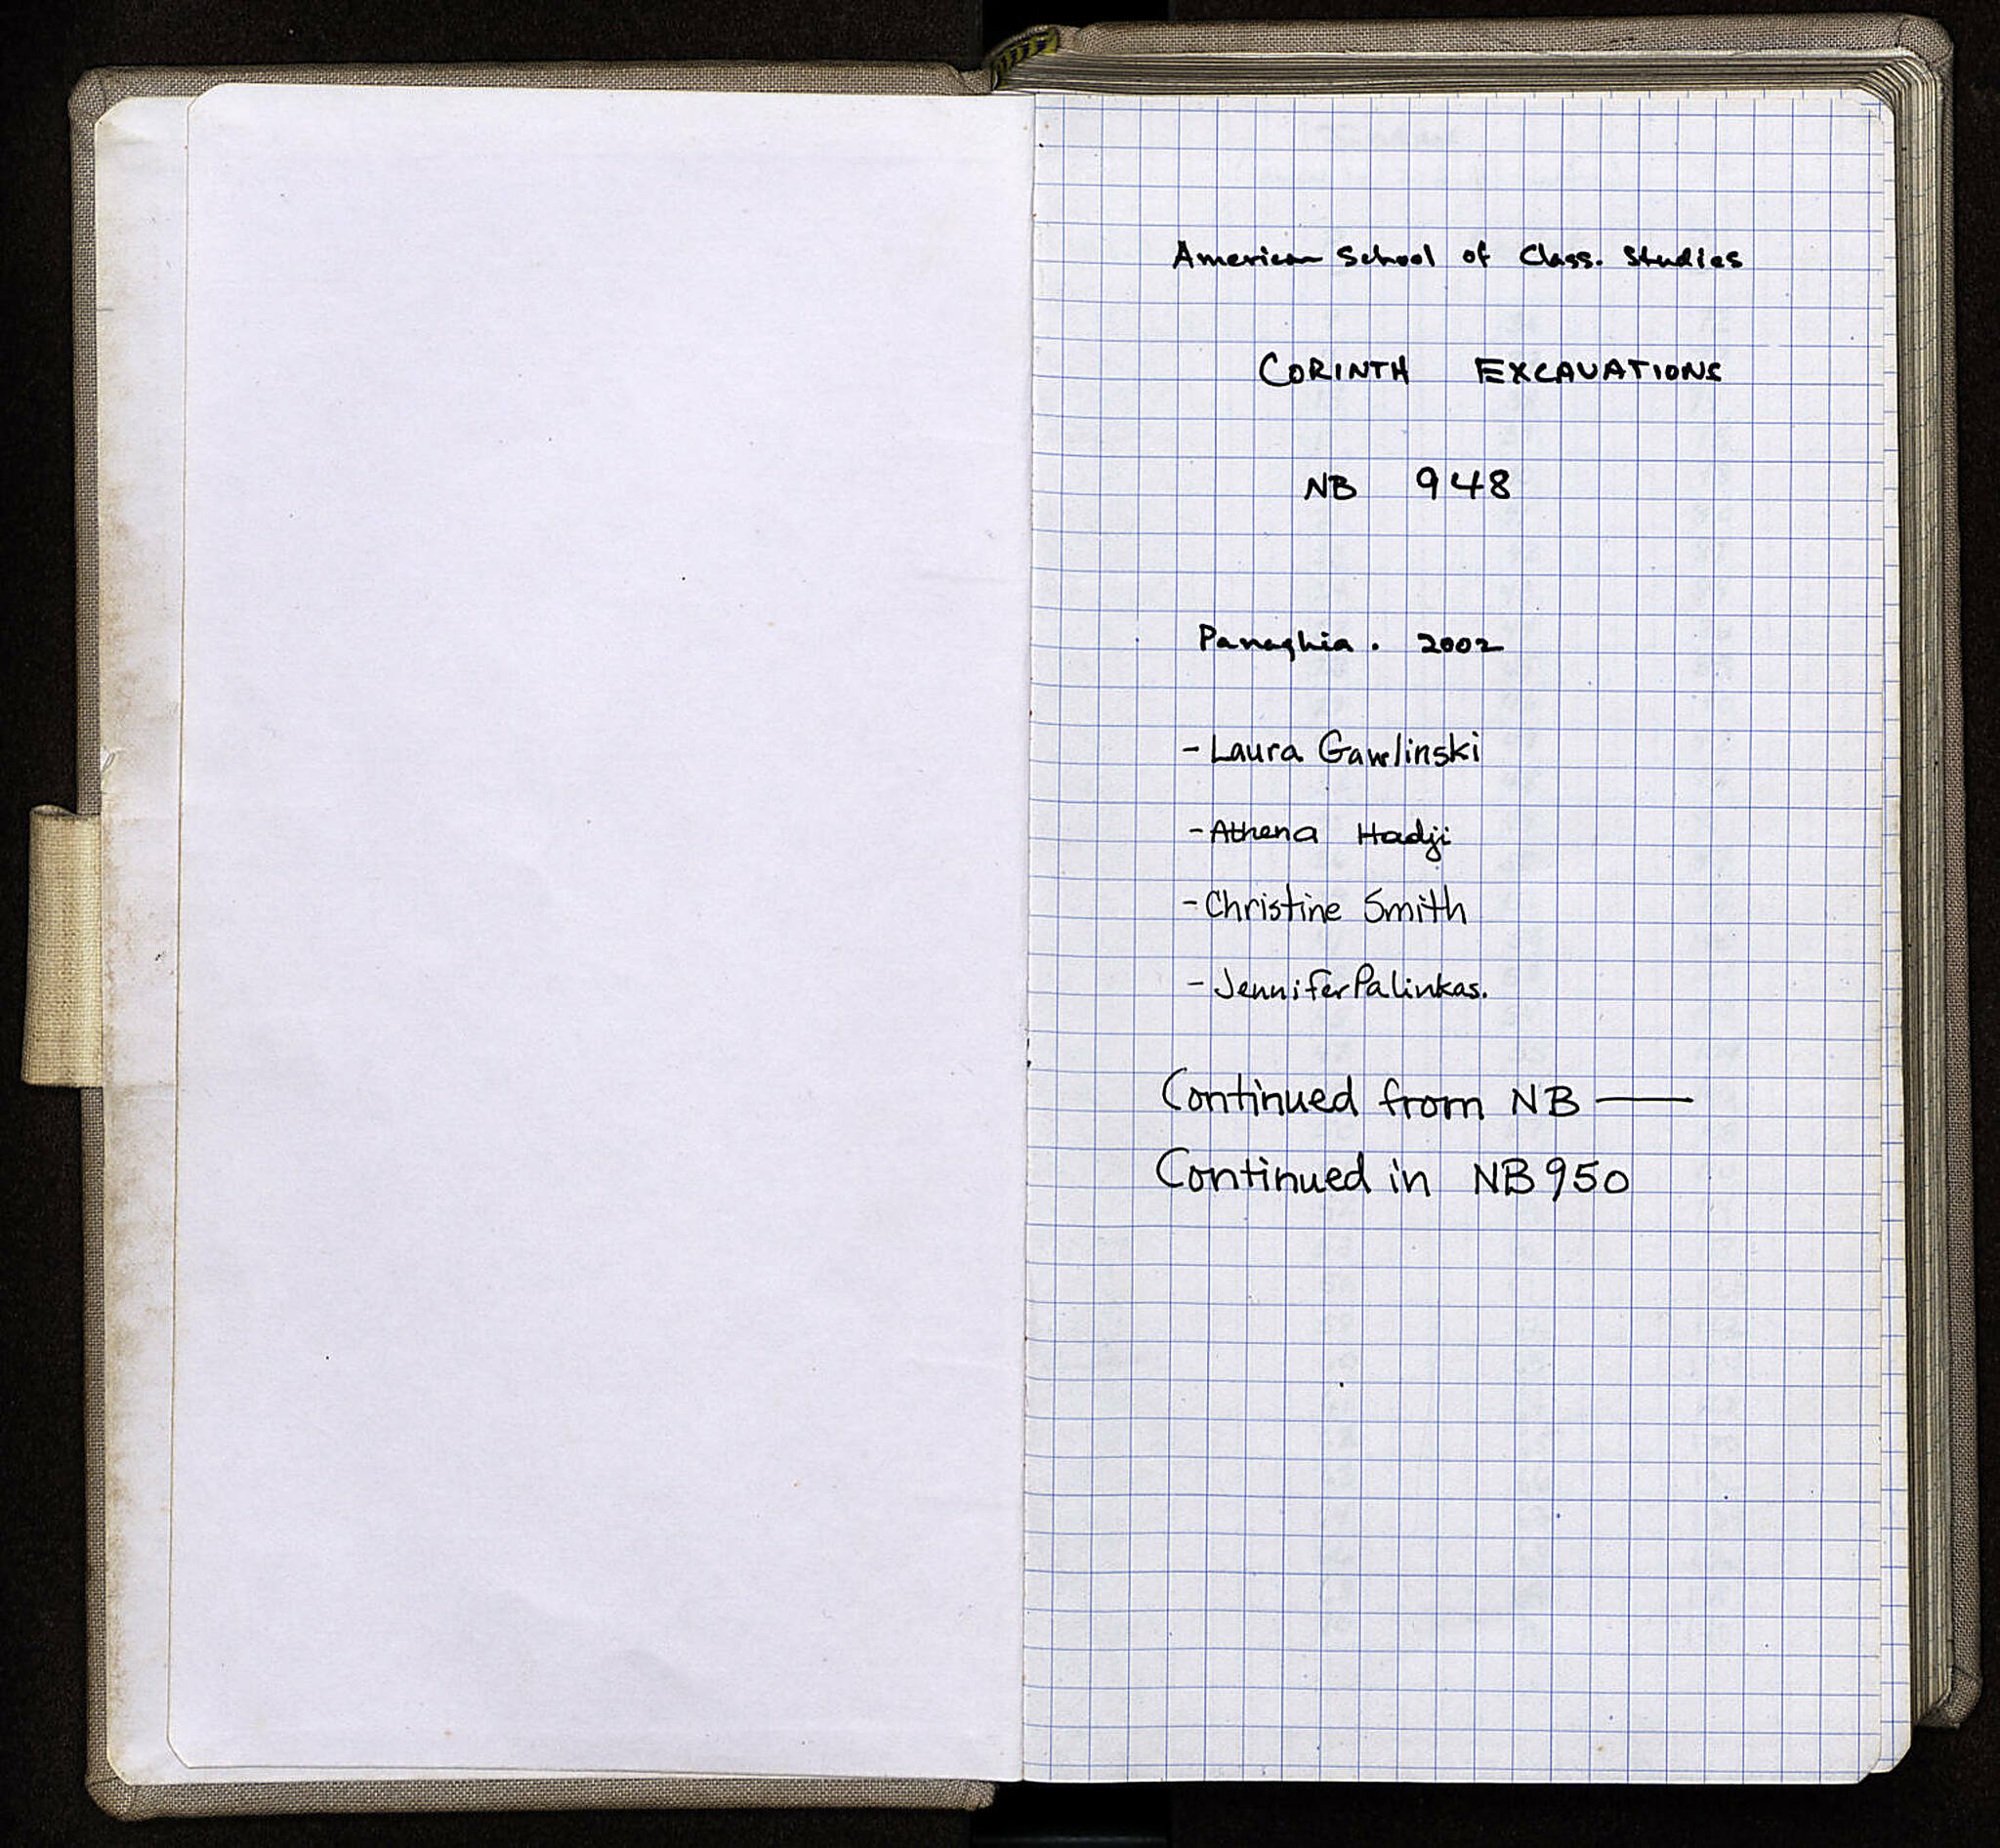 American School of Class. Studies
CORINTH EXCAVATIONS
NB 948
Panaghia. 2002
- Laura Gawlinski
- Athena Hadji
- Christine Smith
- Jennifer Palinkas.
Continued from NB ——
Continued in NB 950